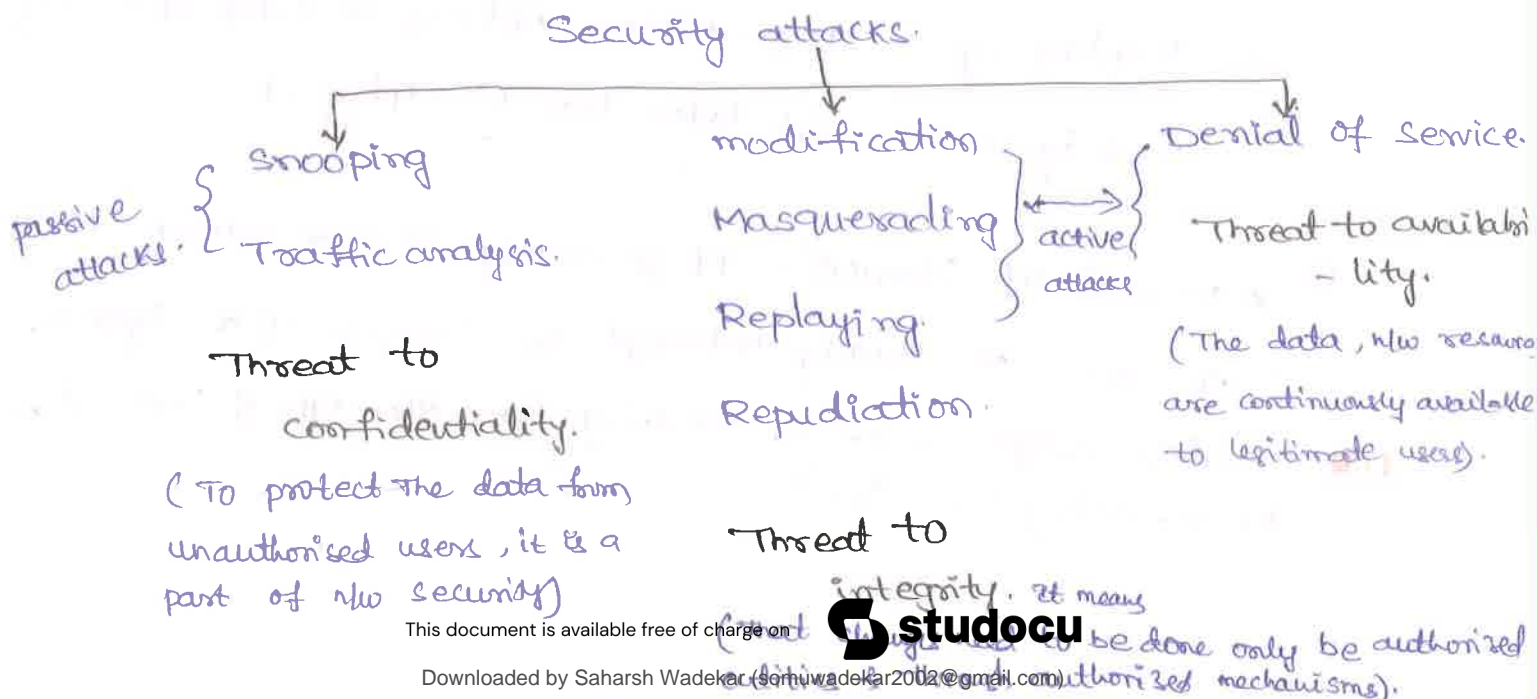 Security attacks.
Snooping
Traffic analysis.
passive
attacks.
Threat to
confidentiality.
(To protect the data form
unauthorised users, it is a
part of n/w security)
modification
Masquerading
Replaying.
Repudiation.
active
attacks
Threat to
integrity. It means
(that changes need to be done only be authorised
entities & through authorized mechanisms).
Denial of Service.
Threat to availabi
- lity.
(The data, n/w resourc
are continuously available
to legitimate users).
This document is available free of charge on
studocu
Downloaded by Saharsh Wadekar (somuwadekar2002@gmail.com)